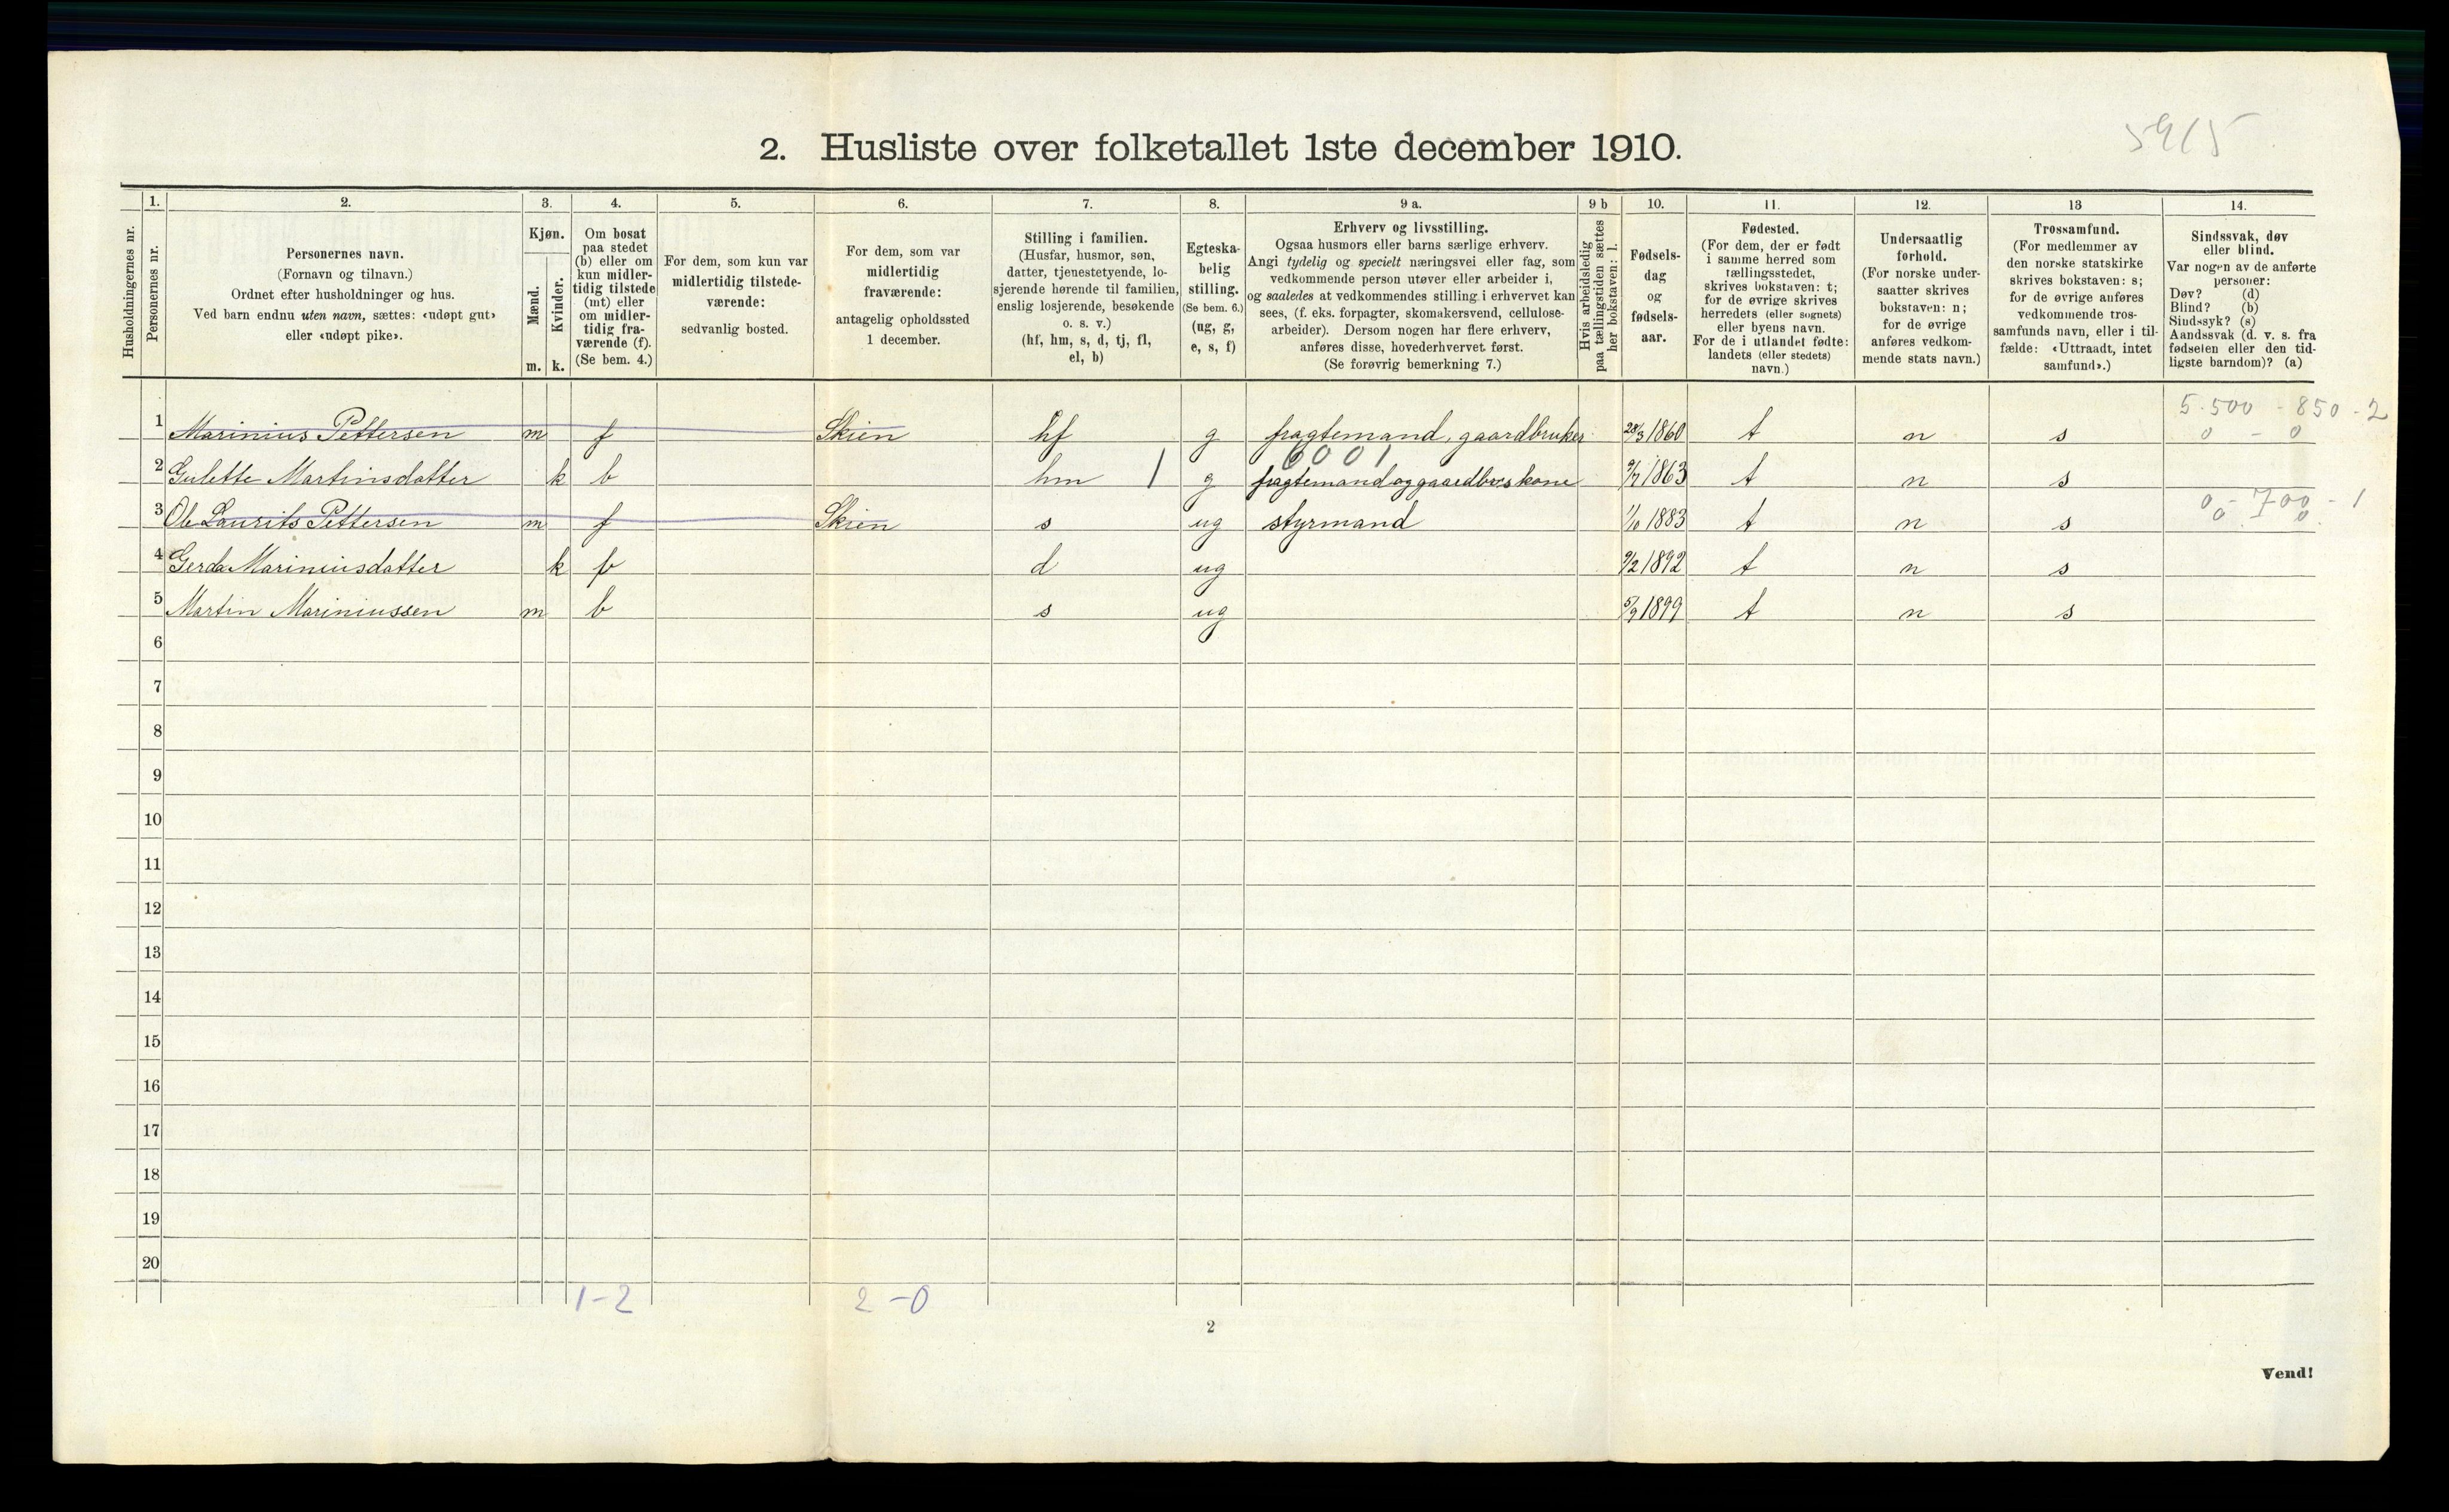 5915
2. Husliste over folketallet 1ste december 1910.
Husholdningernes nr.
1. 2. 3. 4. 5. 6. 7. 8. 9 a. 9 b 10. 11. 12. 13 14.
Personernes nr.
Personernes navn.
(Fornavn og tilnavn.)
Ordnet efter husholdninger og hus.
Ved barn endnu uten navn, sættes: «udøpt gut»
eller «udøpt pike».
Kjøn.
Mænd.
Kvinder.
m. k.
Om bosat
paa stedet
(b) eller om
kun midler-
tidig tilstede
(mt) eller
om midler-
tidig fra-
værende (f).
(Se bem. 4.)
For dem, som kun var
midlertidig tilstede-
værende:
sedvanlig bosted.
For dem, som var
midlertidig
fraværende:
antagelig opholdssted
1 december.
Stilling i familien.
(Husfar, husmor, søn,
datter, tjenestetyende, lo-
sjerende hørende til familien,
enslig losjerende, besøkende
o. s. v.)
(hf, hm, s, d, tj, fl,
el, b)
Egteska-
belig
stilling.
(Se bem. 6.)
(ug, g,
e, s, f)
Erhverv og livsstilling.
Ogsaa husmors eller barns særlige erhverv.
Angi tydelig og specielt næringsvei eller fag, som
vedkommende person utøver eller arbeider i,
og saaledes at vedkommendes stilling i erhvervet kan
sees, (f. eks. forpagter, skomakersvend, cellulose-
arbeider). Dersom nogen har flere erhverv,
anføres disse, hovederhvervet først.
(Se forøvrig bemerkning 7.)
Hvis arbeidsledig
paa tællingstiden sættes
her bokstaven: l.
Fødsels-
dag
og
fødsels-
aar.
Fødested.
(For dem, der er født
i samme herred som
tællingsstedet,
skrives bokstaven: t;
for de øvrige skrives
herredets (eller sognets)
eller byens navn.
For de i utlandet fødte:
landets (eller stedets)
navn.)
Undersaatlig
forhold.
(For norske under-
saatter skrives
bokstaven: n;
for de øvrige
anføres vedkom-
mende stats navn.)
Trossamfund.
(For medlemmer av
den norske statskirke
skrives bokstaven: s;
for de øvrige anføres
vedkommende tros-
samfunds navn, eller i til-
fælde: «Uttraadt, intet
samfund».)
Sindssvak, døv
eller blind.
Var nogen av de anførte
personer:
Døv? (d)
Blind? (b)
Sindssyk? (s)
Aandssvak (d. v. s. fra
fødselen eller den tid-
ligste barndom)? (a)
5.500 - 850 - 2
1 Marinius Pettersen m f Skien hf g fragtemand, gaardbruker 28/3 1860 t n s 0 - 0
6001
2 Gulette Martinsdatter k b hm 1 g fragtemand og gaardbrs kone 9/7 1863 t n s
0 - 700 - 1
3 Ole Laurits Pettersen m f Skien s ug styrmand 1/10 1883 t n s 0 0
4 Gerda Mariniusdatter k b d ug 9/2 1892 t n s
5 Martin Mariniussen m b s ug 5/9 1899 t n s
6
7
8
9
10
11
12
13
14
15
16
17
18
19
20
1-2 2-0
2
Vend!